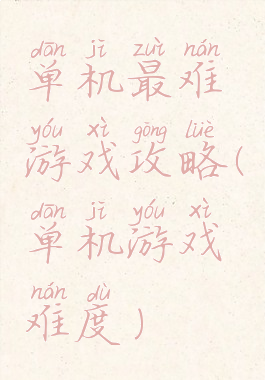 dān jī zuì nán
单机最难
yóu xì gōng lüè
游戏攻略(
dān jī yóu xì
单机游戏
nán dù
难度)